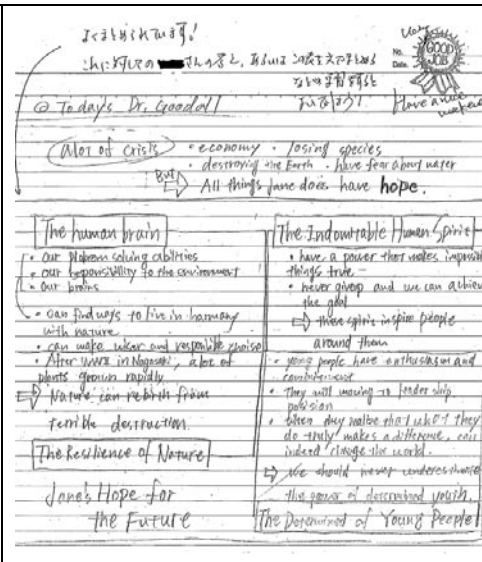 よくまとめられています！
これに対しての さんの答え、あるいは この英文で
No.
Date.
GOOD JOB
Very
Have a nice
@ Today's Dr. Goodall
Alot of crisis
・economy ・losing species
・destroying the Earth ・have fear about water
But
⇨ All things Jane does have hope.
The human brain
・Our plobrem solving abilities
・our responsibility to the environment
・Our brains
・can find ways to live in harmony
with nature
・can make wiser and responsible choise
・After WWII in Nagasaki, alot of
plants grown rapidly
⇨ Nature can rebirth from
terrible destruction.
The Resilience of Nature
Jane's Hope for
the Future
The Indomitable Human Spirit
・have a power that makes impossible
things true
・never give up and we can achieve
the goal
⇨ these spirit inspire people
around them
・young people have enthusiasm and
commitment
・They will moving to leader ship
position
・When they realize that what they
do truly makes a difference, can
indeed change the world.
⇨ We should never underestimate
the power of determined youth.
The Determined of Young People